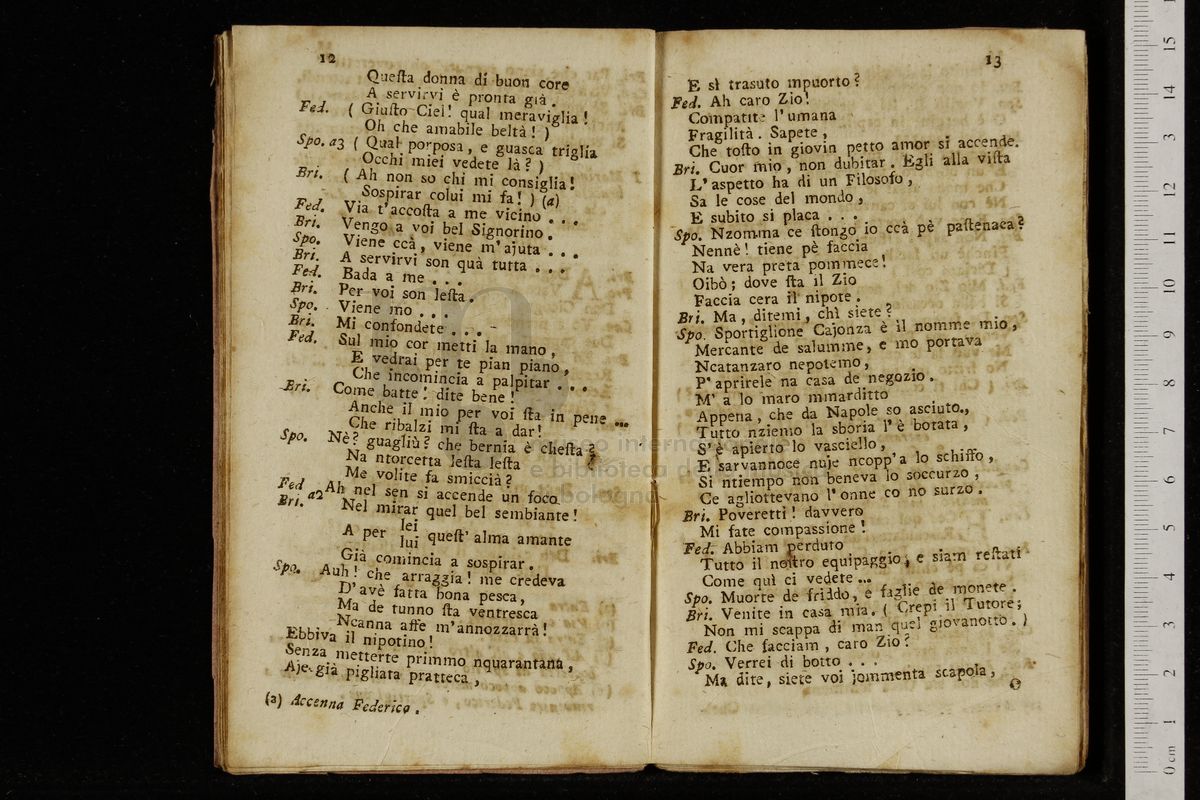 12
Queſta donna di buon core
A servirvi è pronta già.
Fed. ( Giuſto Ciel! qual meraviglia!
Oh che amabile beltà! )
Spo. a3 ( Qual porposa, e guasca triglia
Occhi miei vedete là? )
Bri. ( Ah non so chi mi consiglia!
Sospirar colui mi fa! ) (a)
Fed. Via t'accoſta a me vicino . . .
Bri. Vengo a voi bel Signorino.
Spo. Viene ccà, viene m'ajuta . . .
Bri. A servirvi son quà tutta . . .
Fed. Bada a me . . .
Bri. Per voi son leſta.
Spo. Viene mo . . .
Bri. Mi confondete . . .
Fed. Sul mio cor metti la mano,
E vedrai per te pian piano,
Che incomincia a palpitar . . .
Bri. Come batte! dite bene!
Anche il mio per voi ſta in pene ...
Che ribalzi mi ſta a dar!
Spo. Nè? guagliù? che bernia è cheſta?
Na ntorcetta leſta leſta
Me volite fa smiccià?
Fed Ah nel sen si accende un foco
Bri. a2 Nel mirar quel bel sembiante!
A per lei
lui queſt' alma amante
Già comincia a sospirar.
Spo. Auh! che arraggia! me credeva
D'avè fatta bona pesca,
Ma de tunno ſta ventresca
Ncanna affe m'annozzarrà!
Ebbiva il nipotino!
Senza metterte primmo nquarantana,
Aje già pigliata pratteca,
(a) Accenna Federico.
13
E sì trasuto mpuorto?
Fed. Ah caro Zio!
Compatite l'umana
Fragilità. Sapete,
Che toſto in giovin petto amor si accende.
Bri. Cuor mio, non dubitar. Egli alla viſta
L'aspetto ha di un Filosofo,
Sa le cose del mondo,
E subito si placa . . .
Spo. Nzomma ce ſtongo io ccà pè paſtenaca?
Nennè! tiene pè faccia
Na vera preta pommece!
Oibò; dove ſta il Zio
Faccia cera il nipote.
Bri. Ma, ditemi, chì siete?
Spo. Sportiglione Cajonza è il nomme mio,
Mercante de salumme, e mo portava
Ncatanzaro nepotemo,
P' aprirele na casa de negozio.
M' a lo maro mmarditto
Appena, che da Napole so asciuto.,
Tutto nziemo la sboria l' è botata,
S' è apierto lo vasciello,
E sarvannoce nuje ncopp' a lo schiffo,
Si ntiempo non beneva lo soccurzo,
Ce agliottevano l' onne co no surzo.
Bri. Poveretti! davvero
Mi fate compassione!
Fed. Abbiam perduto
Tutto il noſtro equipaggio; e siam reſtati
Come quì ci vedete ...
Spo. Muorte de friddo, e faglie de monete.
Bri. Venite in casa mia. ( Crepi il Tutore;
Non mi scappa di man quel giovanotto. )
Fed. Che facciam, caro Zio?
Spo. Verrei di botto . . .
Ma dite, siete voi jommenta scapola,